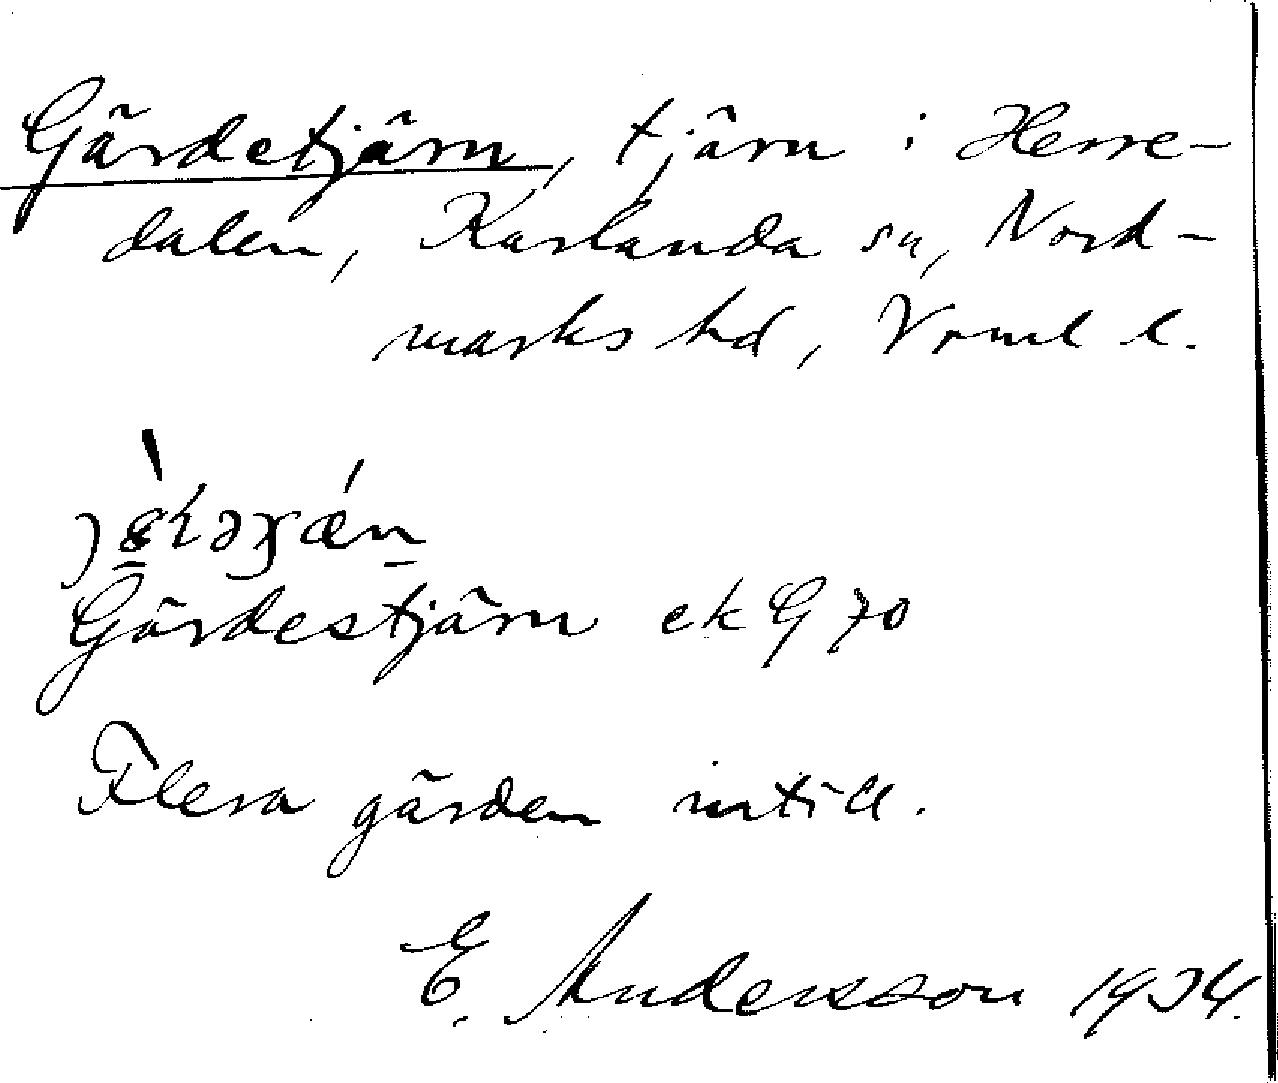 Gärdetjärn, tjärn i Herre-
dalen, Karlanda sn, Nord-
marks hd, Vrml l.
Gärdestjärn ek G 70
Flera gärden intill.
E. Andersson 1934.